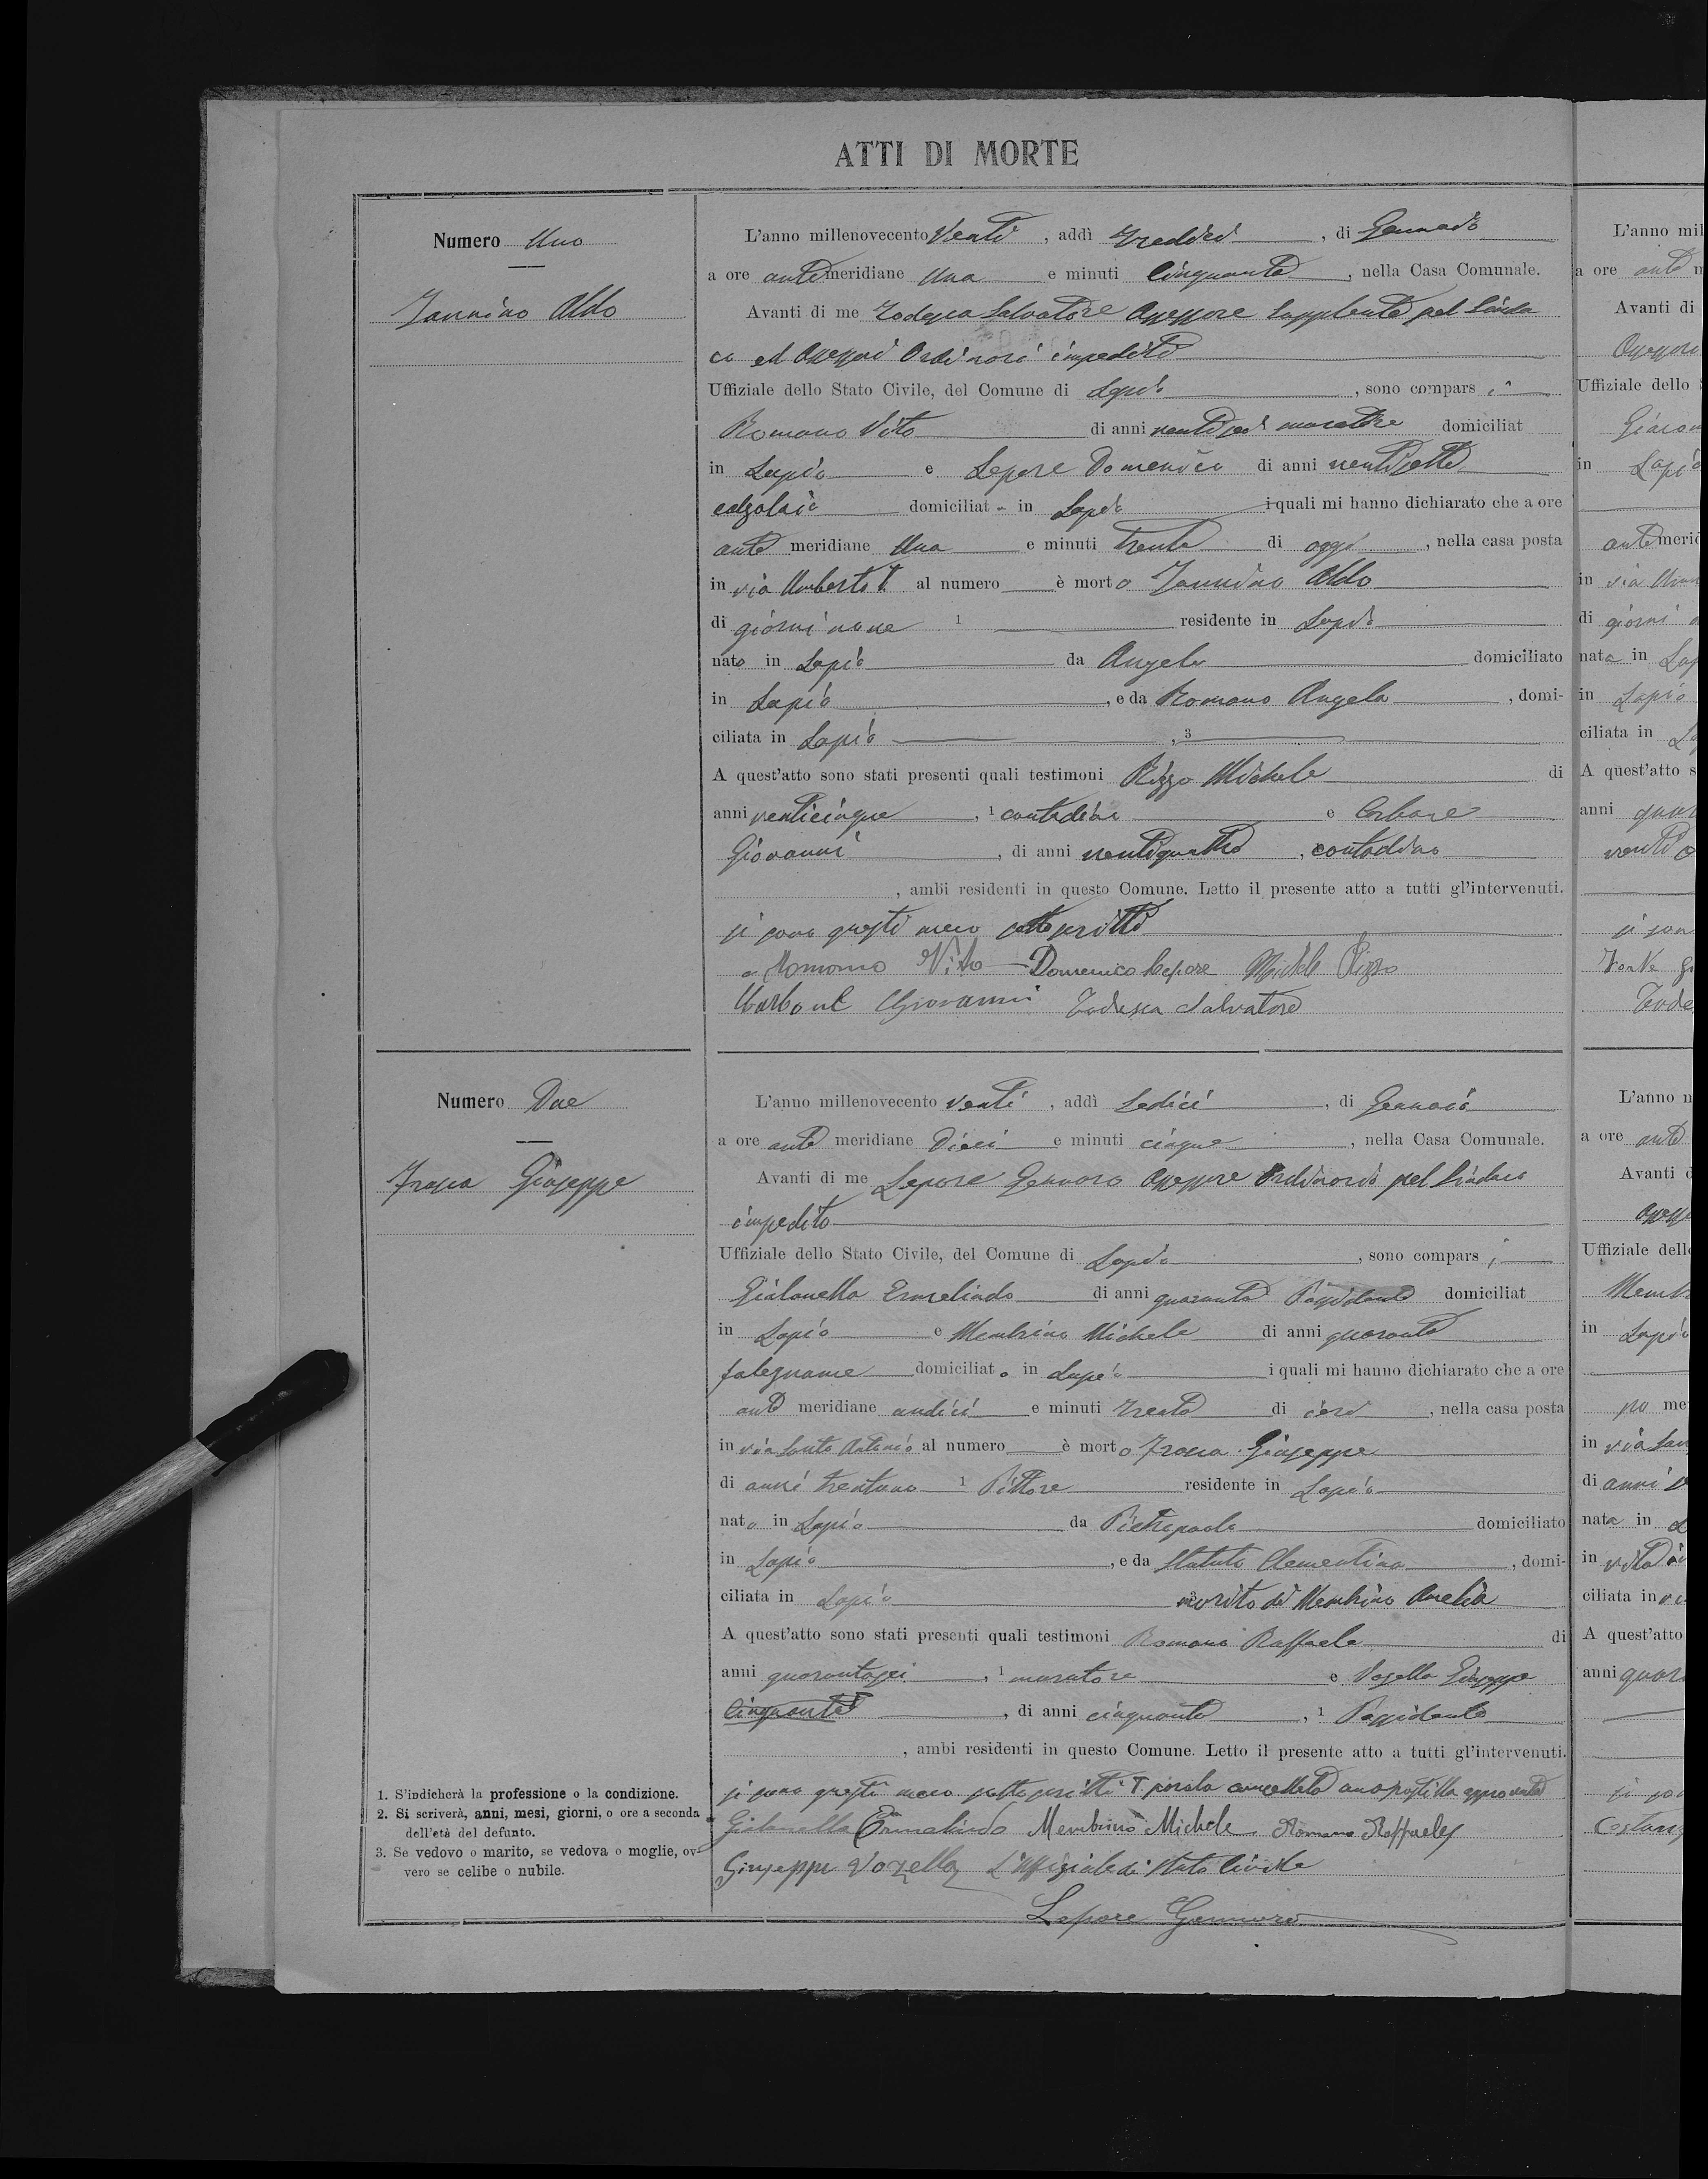 ATTI DI MORTE
Numero Uno
Iannino Aldo
L'anno millenovecento Venti, addì Tredici, di Gennaio
a ore antimeridiane Una e minuti Cinquanta, nella Casa Comunale.
Avanti di me Todesca Salvatore Assessore Supplente pel Sinda
co ed Assessori Ordinari impediti
Uffiziale dello Stato Civile, del Comune di Lapio, sono comparsi
Romano Vito di anni ventisei muratore domiciliat
in Lapio e Lepore Domenico di anni ventisette
calzolaio domiciliato in Lapio i quali mi hanno dichiarato che a ore
anti meridiane Una e minuti trenta di oggi, nella casa posta
in via Umberto I al numero è morto Iannino Aldo
di giorni nove 1 residente in Lapio
nato in Lapio da Angelo domiciliato
in Lapio, e da Romano Angela, domi-
ciliata in Lapio, 3
A quest'atto sono stati presenti quali testimoni Rizzo Michele di
anni venticinque, 1 contadino e Carbone
Giovanni, di anni ventiquattro, contadino
, ambi residenti in questo Comune. Letto il presente atto a tutti gl'intervenuti.
si sono questi meco sottoscritti
Romano Vito Domenico Lepore Michele Rizzo
Carbone Giovanni Todesca Salvatore
Numero Due
Frasca Giuseppe
L'anno millenovecento venti, addì Sedici, di Gennaio
a ore anti meridiane Dieci e minuti cinque, nella Casa Comunale.
Avanti di me Lepore Gennaro Assessore Ordinario pel Sindaco
impedito
Uffiziale dello Stato Civile, del Comune di Lapio, sono comparsi
Gialanella Ermelindo di anni quaranta Possidente domiciliat
in Lapio e Membrino Michele di anni quaranta
falegname domiciliato in Lapio i quali mi hanno dichiarato che a ore
anti meridiane undici e minuti trenta di ieri, nella casa posta
in via Santo Antonio al numero è morto Frasca Giuseppe
di anni trentuno 1 Pittore residente in Lapio
nato in Lapio da Pietropaolo domiciliato
in Lapio, e da Statuto Clementina, domi-
ciliata in Lapio marito di Membrino Amelia
A quest'atto sono stati presenti quali testimoni Romano Raffaele di
anni quarantasei, 1 muratore e Vozella Giuseppe
Cinquanta, di anni cinquanta, 1 Possidente
, ambi residenti in questo Comune. Letto il presente atto a tutti gl'intervenuti.
si sono questi meco sottoscritti parola cancellata una postilla approvata
Gialanella Ermelindo Membrino Michele Romano Raffaele
Giuseppe Vozella L'uffiziale di Stato Civile
Lepore Gennaro
1. S'indicherà la professione o la condizione.
2. Si scriverà, anni, mesi, giorni, o ore a seconda
dell'età del defunto.
3. Se vedovo o marito, se vedova o moglie, ov-
vero se celibe o nubile.
L'anno mil
a ore anti m
Avanti di
Assessore
Uffiziale dello
in Lapio
anti meri
in via
di giorni
nata in Lap
in Lapio
ciliata in
A quest'atto s
anni
si son
L'anno n
a ore anti
Avanti d
Uffiziale dell
Memb
in Lapio
me
in via San
di anni
nata in
in
ciliata in
A quest'atto
anni quar
si so